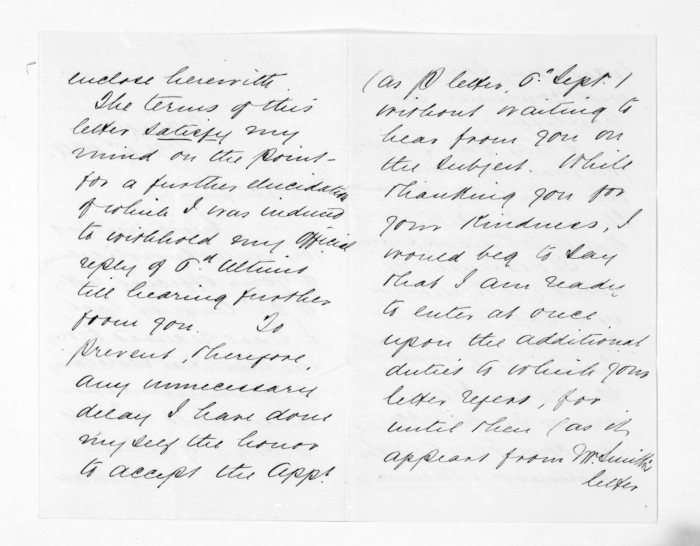 enclose herewith.
The terms of this
letter satisfy my
mind on the point –
for a further elucidation
of which I was induced
to withhold my official
reply of 6th Ultimo
till hearing further
from you. To
prevent, therefore,
any unnecessary
delay I have done
myself the honor
to accept the Appt.
(as p letter, 6th Sept.)
without waiting to
hear from you on
the subject. While
thanking you for
your kindness, I
would beg to say
that I am ready
to enter at once
upon the additional
duties to which your
letter refers, for
until then (as it
appears from Mr. Smith's
letter